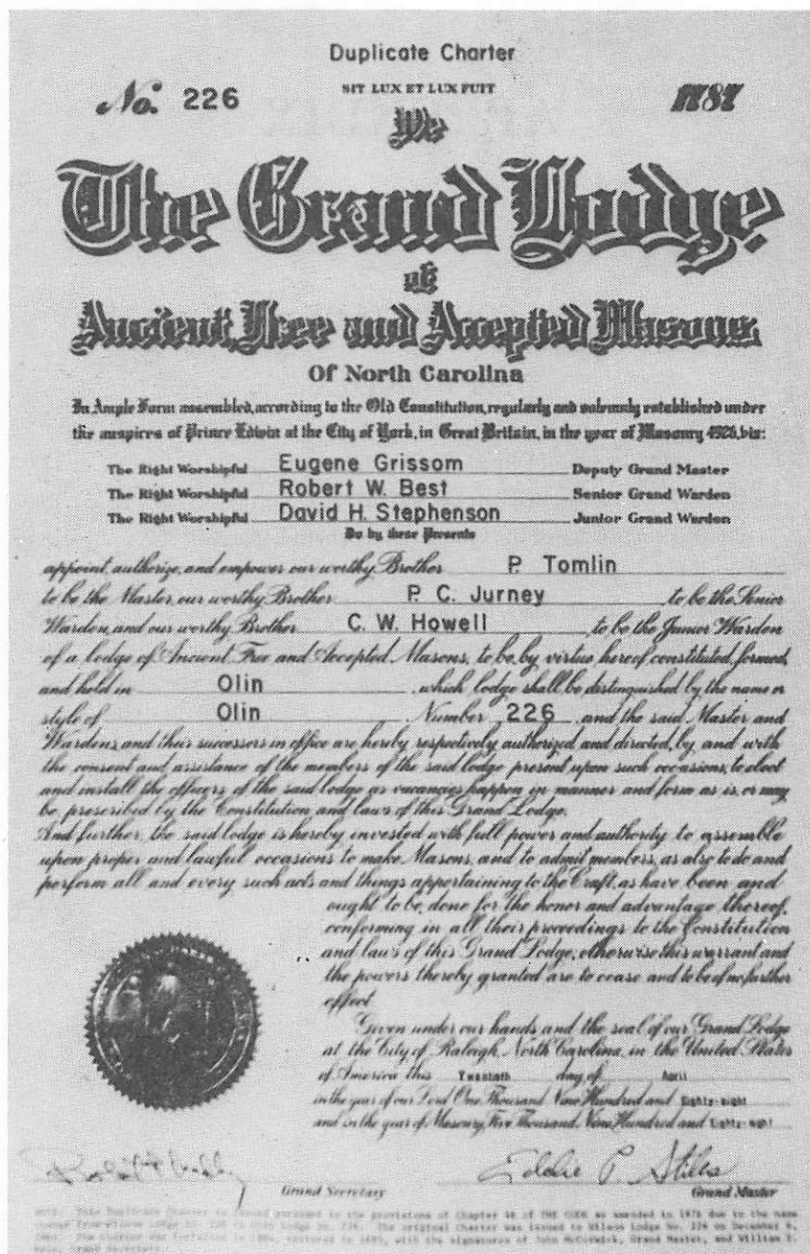 Duplicate Charter
No. 226 SIT LUX ET LUX FUIT 1787
We
The Grand Lodge
of
Ancient, Free and Accepted Masons
Of North Carolina
In Ample Form assembled, according to the Old Constitution, regularly and solemnly established under
the auspices of Prince Edwin at the City of York, in Great Britain, in the year of Masonry 4926, viz:
The Right Worshipful Eugene Grissom Deputy Grand Master
The Right Worshipful Robert W. Best Senior Grand Warden
The Right Worshipful David H. Stephenson Junior Grand Warden
Do by these Presents
appoint, authorize, and empower our worthy Brother P. Tomlin
to be the Master, our worthy Brother P. C. Jurney to be the Senior
Warden, and our worthy Brother C. W. Howell to be the Junior Warden
of a lodge of Ancient Free and Accepted Masons, to be, by virtue hereof constituted, formed,
and held in Olin which lodge shall be distinguished by the name or
style of Olin Number 226 and the said Master and
Wardens, and their successors in office are hereby respectively authorized and directed, by and with
the consent and assistance of the members of the said lodge present upon such occasions, to elect
and install the officers of the said lodge as vacancies happen in manner and form as is, or may
be, prescribed by the Constitution and laws of this Grand Lodge.
And further, the said lodge is hereby invested with full power and authority to assemble
upon proper and lawful occasions to make Masons, and to admit members, as also to do and
perform all and every such acts and things appertaining to the Craft, as have been and
ought to be, done for the honor and advantage thereof,
conforming in all their proceedings to the Constitution
and laws of this Grand Lodge, otherwise this warrant and
the powers thereby granted are to cease and to be of no further
effect.
Given under our hands and the seal of our Grand Lodge
at the City of Raleigh, North Carolina, in the United States
of America this Twentieth day of April
in the year of our Lord One Thousand Nine Hundred and Eighty-eight
and in the year of Masonry Five Thousand Nine Hundred and Eighty-eight
Eddie P. Stiles
Grand Secretary Grand Master
NOTE: This Duplicate Charter is issued pursuant to the provisions of Chapter 48 of THE CODE as amended in 1978 due to the name
change from Wilson Lodge No. 226 to Olin Lodge No. 226. The original Charter was issued to Wilson Lodge No. 226 on December
The Charter was with the signatures of John McCormick, Grand Master, and William
Grand Secretary.